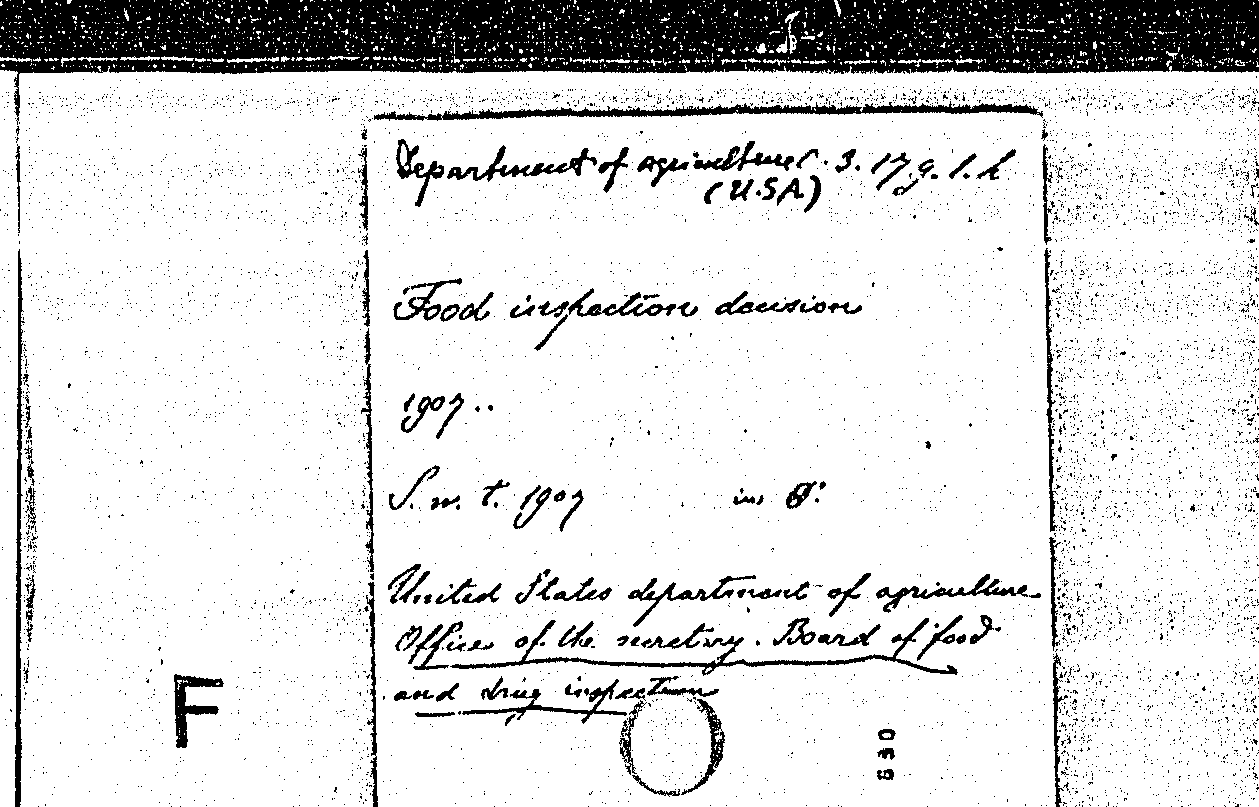 Department of agriculture. 3. 17 g. l. k
(U.S.A.)
Food inspection decision
1907..
S. w. t. 1907 in 8:
United States department of agriculture
Office of the secretary. Board of food
and drug inspection
F
630